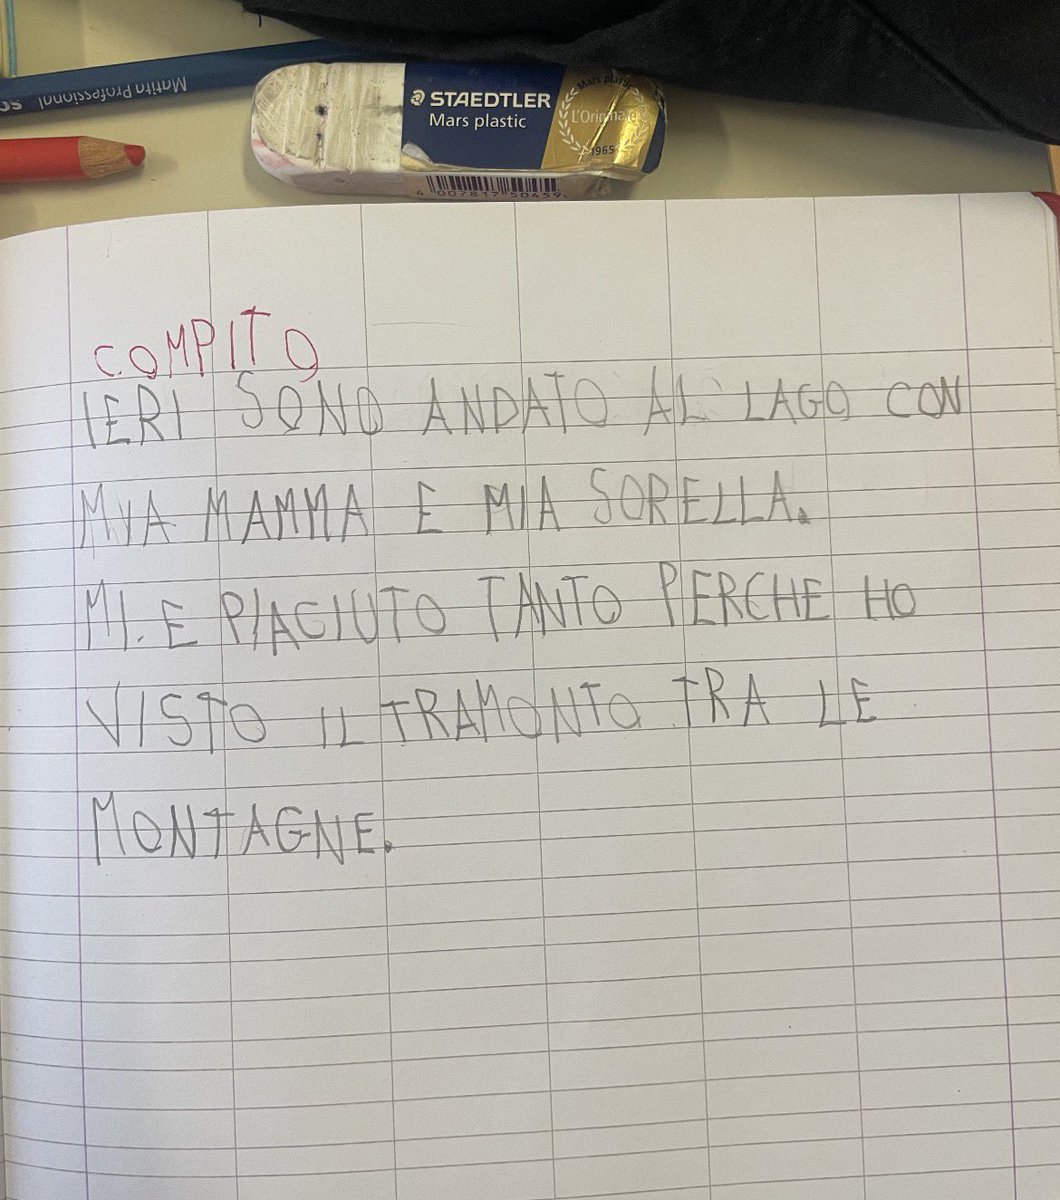 Matita Professional
STAEDTLER
Mars plastic
Mars plastic
L'Originale
1965
COMPITO
IERI SONO ANDATO AL LAGO CON
MIA MAMMA E MIA SORELLA.
MI. E PIACIUTO TANTO PERCHE HO
VISTO IL TRAMONTO TRA LE
MONTAGNE.